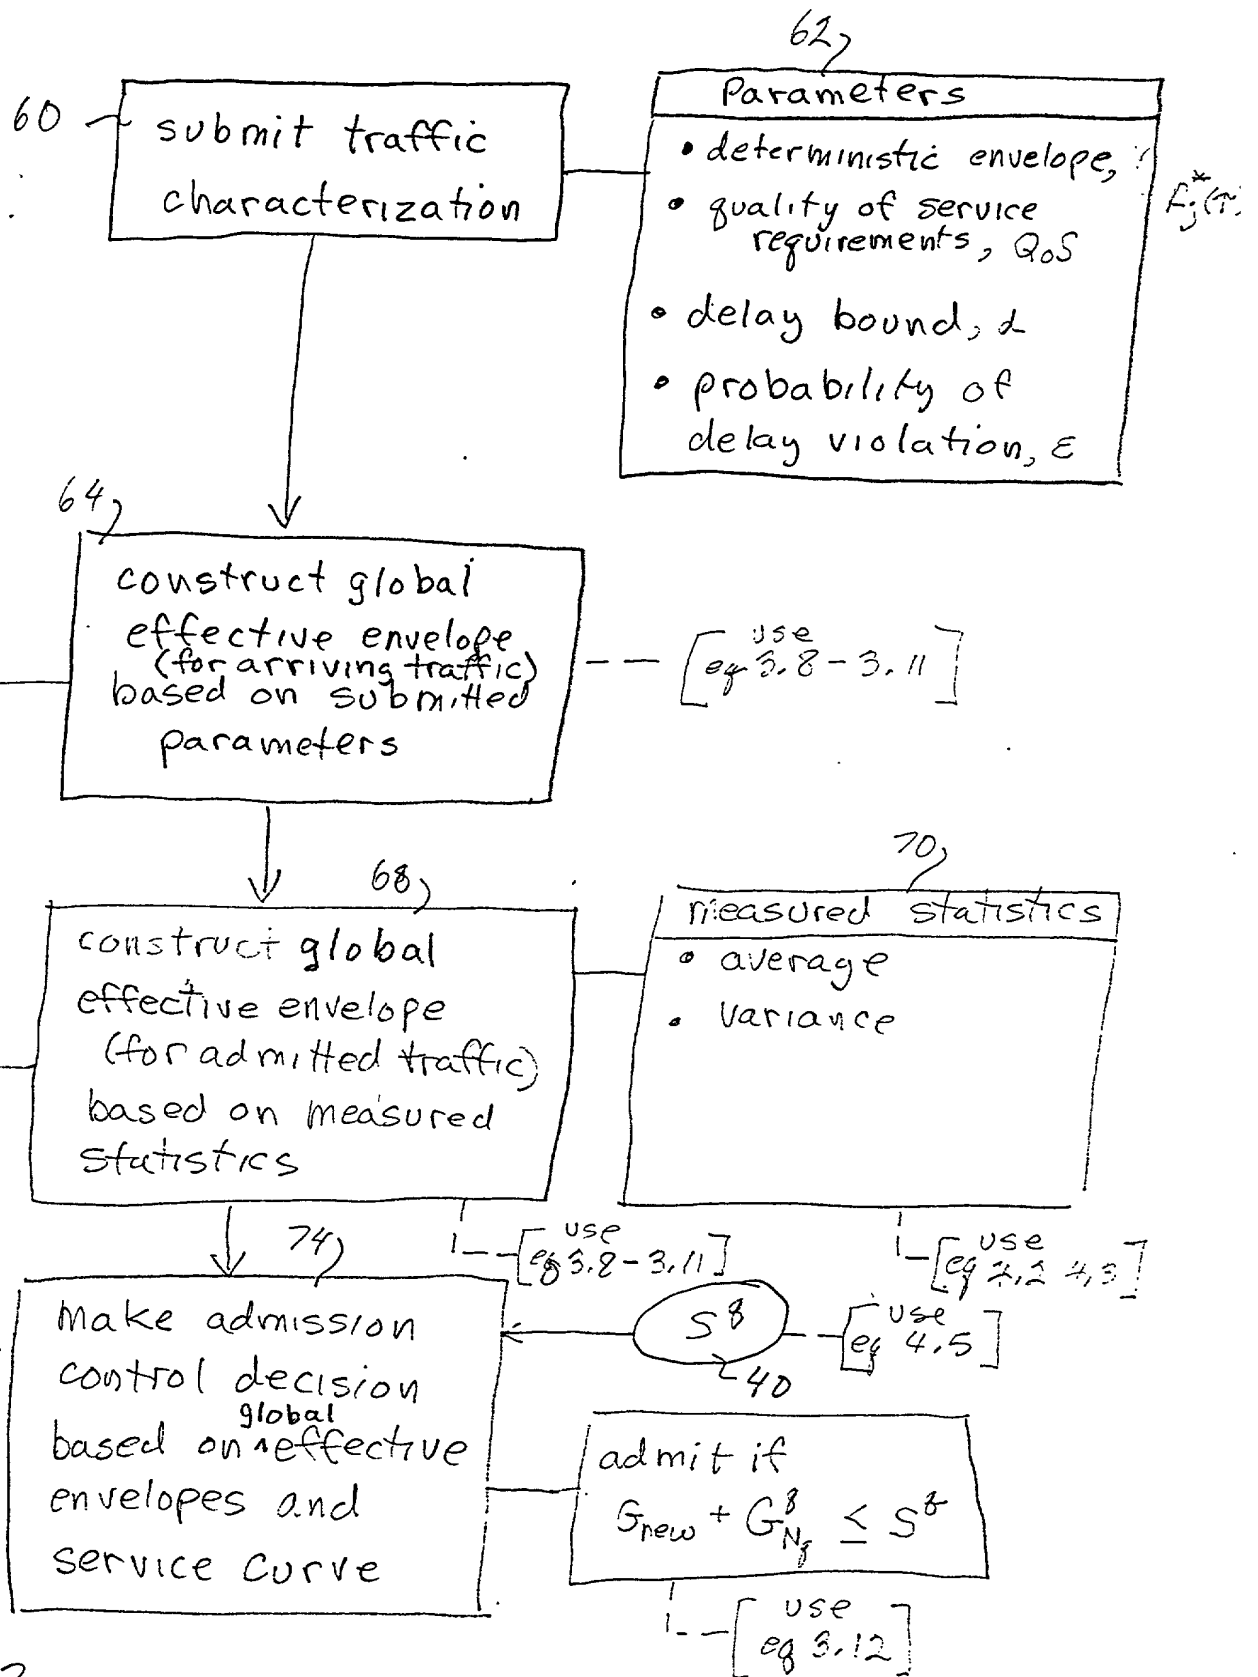 62
60
submit traffic
characterization
Parameters
• deterministic envelope,
F*j(τ)
• quality of service
requirements, QoS
• delay bound, d
• probability of
delay violation, ε
64
construct global
effective envelope
(for arriving traffic)
based on submitted
parameters
use
eq 3.8 - 3.11
68
construct global
effective envelope
(for admitted traffic)
based on measured
statistics
70
measured statistics
• average
• variance
use
eq 3.8 - 3.11
use
eq 4.2 4.3
74
make admission
control decision
global
based on ^ effective
envelopes and
service curve
S^q
40
use
eq 4.5
admit if
G_new + G^q_Nq ≤ S^q
use
eq 3.12